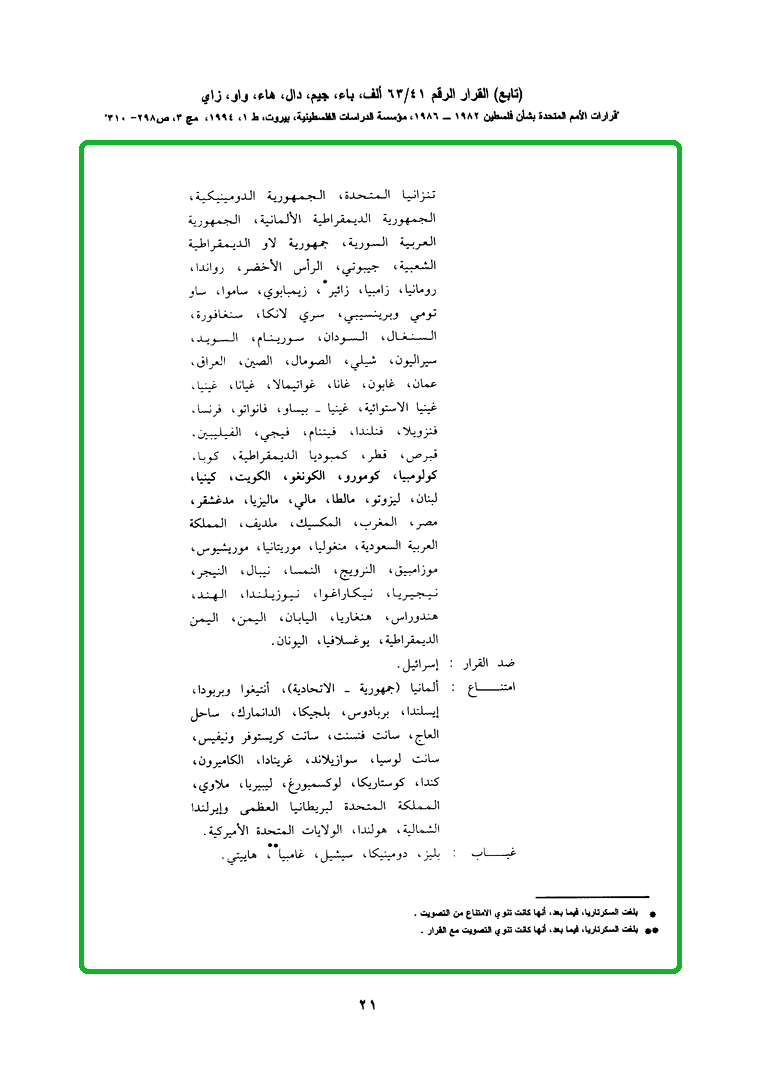 (تابع) القرار الرقم ٦٣/٤١ ألف، باء، جيم، دال، هاء، واو، زاي
"قرارات الأمم المتحدة بشأن فلسطين ١٩٨٢ ــ ١٩٨٦، مؤسسة الدراسات الفلسطينية، بيروت، ط ١، ١٩٩٤، مج ٣، ص٢٩٨- ٣١٠"
تنزانيا المتحدة، الجمهورية الدومينيكية،
الجمهورية الديمقراطية الألمانية، الجمهورية
العربية السورية، جمهورية لاو الديمقراطية
الشعبية، جيبوتي، الرأس الأخضر، رواندا،
رومانيا، زامبيا، زائير*، زيمبابوي، ساموا، ساو
تومي وبرينسيبي، سري لانكا، سنغافورة،
السنغال، السودان، سورينام، السويد،
سيراليون، شيلي، الصومال، الصين، العراق،
عمان، غابون، غانا، غواتيمالا، غيانا، غينيا،
غينيا الاستوائية، غينيا ـ بيساو، فانواتو، فرنسا،
فنزويلا، فنلندا، فيتنام، فيجي، الفيليبين،
قبرص، قطر، كمبوديا الديمقراطية، كوبا،
كولومبيا، كومورو، الكونغو، الكويت، كينيا،
لبنان، ليزوتو، مالطا، مالي، ماليزيا، مدغشقر،
مصر، المغرب، المكسيك، ملديف، المملكة
العربية السعودية، منغوليا، موريتانيا، موريشيوس،
موزامبيق، النرويج، النمسا، نيبال، النيجر،
نيجيريا، نيكاراغوا، نيوزيلندا، الهند،
هندوراس، هنغاريا، اليابان، اليمن، اليمن
الديمقراطية، يوغسلافيا، اليونان.
ضد القرار : إسرائيل.
امتنـــاع : ألمانيا (جمهورية ـ الاتحادية)، أنتيغوا وبربودا،
إيسلندا، بربادوس، بلجيكا، الدانمارك، ساحل
العاج، سانت فنسنت، سانت كريستوفر ونيفيس،
سانت لوسيا، سوازيلاند، غرينادا، الكاميرون،
كندا، كوستاريكا، لوكسمبورغ، ليبيريا، ملاوي،
المملكة المتحدة لبريطانيا العظمى وإيرلندا
الشمالية، هولندا، الولايات المتحدة الأميركية.
غيـــاب : بليز، دومينيكا، سيشيل، غامبيا**، هاييتي.
* بلغت السكرتاريا، فيما بعد، أنها كانت تنوي الامتناع من التصويت .
** بلغت السكرتاريا، فيما بعد، أنها كانت تنوي التصويت مع القرار .
٢١